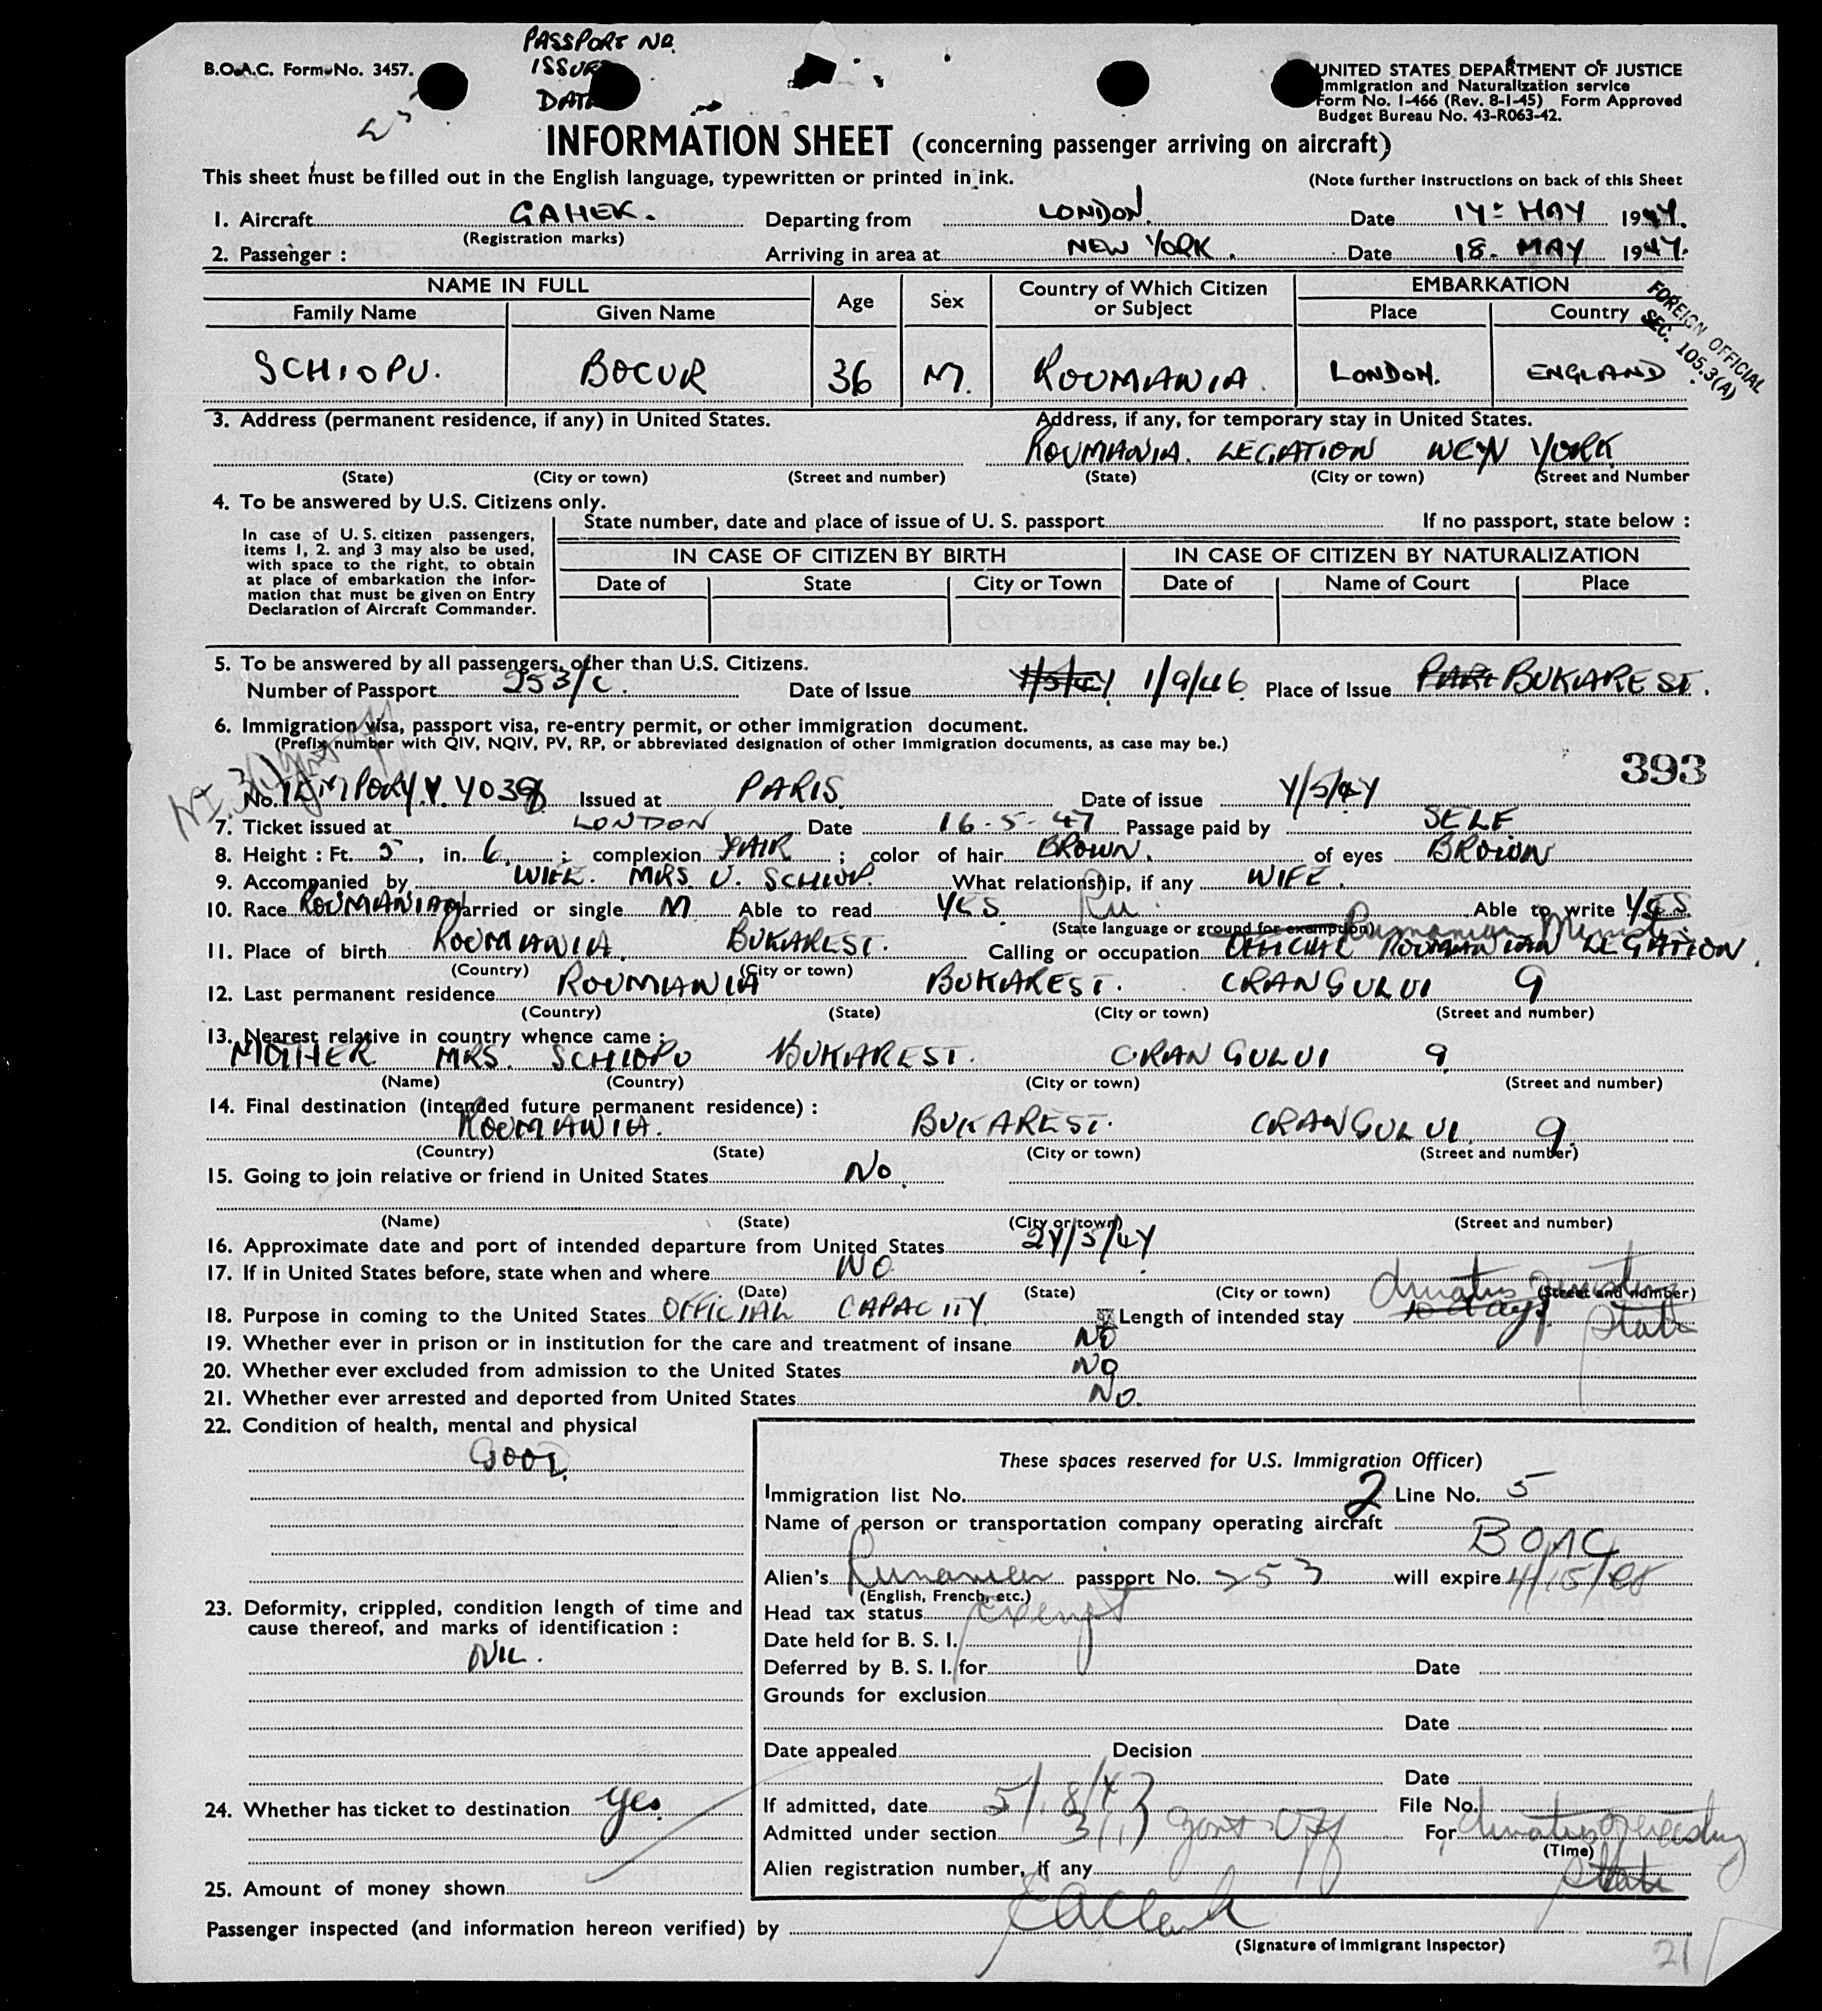 PASSPORT No.
B.O.A.C. Form No. 3457.
ISSUE
DATE
UNITED STATES DEPARTMENT OF JUSTICE
Immigration and Naturalization service
Form No. I-466 (Rev. 8-1-45) Form Approved
Budget Bureau No. 43-R063-42.
INFORMATION SHEET (concerning passenger arriving on aircraft)
This sheet must be filled out in the English language, typewritten or printed in ink. (Note further instructions on back of this Sheet
1. Aircraft GAHEK. Departing from LONDON. Date 17= MAY 1947.
(Registration marks)
2. Passenger : Arriving in area at NEW YORK. Date 18. MAY 1947.
NAME IN FULL Age Sex Country of Which Citizen or Subject EMBARKATION
Family Name Given Name Place Country
FOREIGN OFFICIAL
SEC. 105.3(A)
SCHIOPU. BOCUR 36 M. ROUMANIA. LONDON. ENGLAND
3. Address (permanent residence, if any) in United States. Address, if any, for temporary stay in United States.
ROUMANIA. LEGATION NEW YORK
(State) (City or town) (Street and number) (State) (City or town) (Street and Number
4. To be answered by U.S. Citizens only.
In case of U. S. citizen passengers,
items 1, 2. and 3 may also be used,
with space to the right, to obtain
at place of embarkation the infor-
mation that must be given on Entry
Declaration of Aircraft Commander.
State number, date and place of issue of U. S. passport If no passport, state below :
IN CASE OF CITIZEN BY BIRTH IN CASE OF CITIZEN BY NATURALIZATION
Date of State City or Town Date of Name of Court Place
5. To be answered by all passengers, other than U.S. Citizens.
Number of Passport 253/C. Date of Issue 1/9/46 Place of Issue BUKAREST.
6. Immigration visa, passport visa, re-entry permit, or other immigration document.
(Prefix number with QIV, NQIV, PV, RP, or abbreviated designation of other immigration documents, as case may be.)
393
No. Issued at PARIS. Date of issue 7/5/47
7. Ticket issued at LONDON Date 16-5-47 Passage paid by SELF
8. Height : Ft. 5, in. 6. ; complexion FAIR ; color of hair BROWN. of eyes BROWN
9. Accompanied by WIFE. MRS. U. SCHIOP. What relationship, if any WIFE.
10. Race ROUMANIAN Married or single M Able to read YES. Ru. Able to write YES
(State language or ground for exemption) Rumanian Minister
11. Place of birth ROUMANIA. BUKAREST. Calling or occupation OFFICIAL ROUMANIAN LEGATION.
(Country) (City or town)
12. Last permanent residence ROUMANIA BUKAREST. CRANGULUI 9
(Country) (State) (City or town) (Street and number)
13. Nearest relative in country whence came :
MOTHER MRS. SCHIOPU BUKAREST. CRANGULUI 9
(Name) (Country) (City or town) (Street and number)
14. Final destination (intended future permanent residence) :
ROUMANIA. BUKAREST. CRANGULUI. 9.
(Country) (State) (City or town) (Street and number)
15. Going to join relative or friend in United States No.
(Name) (State) (City or town) (Street and number)
16. Approximate date and port of intended departure from United States 27/5/47
17. If in United States before, state when and where NO
(Date) (State) (City or town) (Street and number)
18. Purpose in coming to the United States OFFICIAL CAPACITY. Length of intended stay 10 days. State
19. Whether ever in prison or in institution for the care and treatment of insane NO
20. Whether ever excluded from admission to the United States NO
21. Whether ever arrested and deported from United States NO.
22. Condition of health, mental and physical
GOOD.
23. Deformity, crippled, condition length of time and
cause thereof, and marks of identification :
NIL.
24. Whether has ticket to destination yes.
25. Amount of money shown
These spaces reserved for U.S. Immigration Officer)
Immigration list No. 2 Line No. 5
Name of person or transportation company operating aircraft
BOAC
Alien's Rumanian passport No. 253 will expire
(English, French, etc.)
Head tax status Exempt
Date held for B. S. I.
Deferred by B. S. I. for Date
Grounds for exclusion
Date
Date appealed Decision
Date
If admitted, date 5/18/47 File No.
Admitted under section 3(1) Govt Off For
(Time)
State
Alien registration number, if any
Passenger inspected (and information hereon verified) by
(Signature of Immigrant Inspector)
21